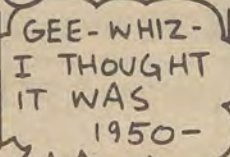 GEE-WHIZ-
I THOUGHT
IT WAS
1950-